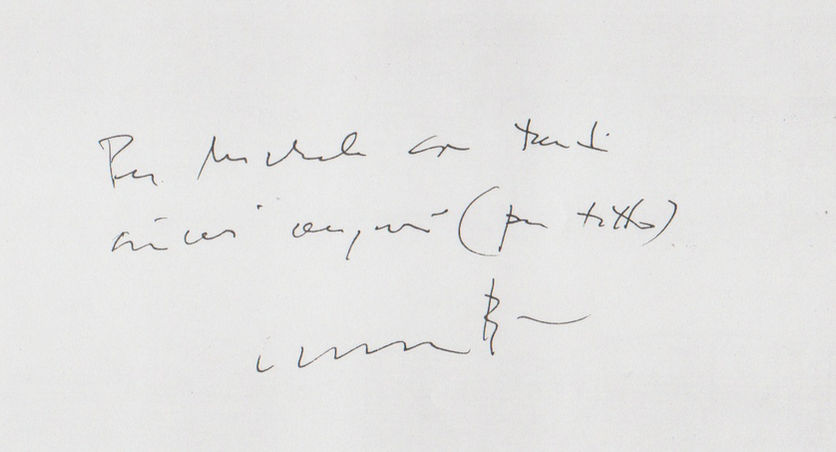 Per Michele con tanti
sinceri auguri (per tutto)